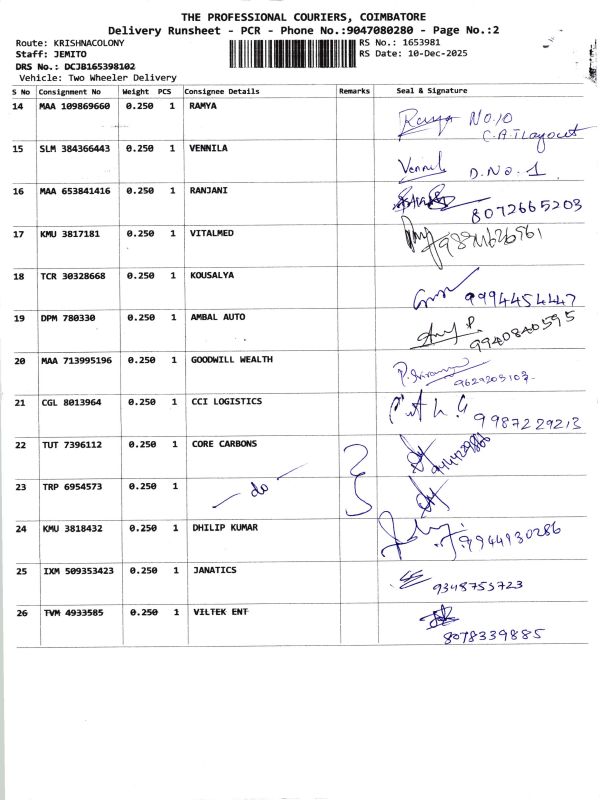 THE PROFESSIONAL COURIERS, COIMBATORE
Delivery Runsheet - PCR - Phone No.:9047080280 - Page No.:2
Route: KRISHNACOLONY
Staff: JEMITO
DRS No.: DCJB165398102
Vehicle: Two Wheeler Delivery
RS No.: 1653981
RS Date: 10-Dec-2025
S No Consignment No Weight PCS Consignee Details Remarks Seal & Signature
14 MAA 109869660 0.250 1 RAMYA Ramya No.10
C.A.T Layout
15 SLM 384366443 0.250 1 VENNILA Vennila D.No. 1
16 MAA 653841416 0.250 1 RANJANI 8072665203
17 KMU 3817181 0.250 1 VITALMED
18 TCR 30328668 0.250 1 KOUSALYA 9994454447
19 DPM 780330 0.250 1 AMBAL AUTO 9940840595
20 MAA 713995196 0.250 1 GOODWILL WEALTH 9629205103.
21 CGL 8013964 0.250 1 CCI LOGISTICS 9987229213
22 TUT 7396112 0.250 1 CORE CARBONS
23 TRP 6954573 0.250 1 — do —
24 KMU 3818432 0.250 1 DHILIP KUMAR 9944130286
25 IXM 509353423 0.250 1 JANATICS 9348753723
26 TVM 4933585 0.250 1 VILTEK ENT 8078339885